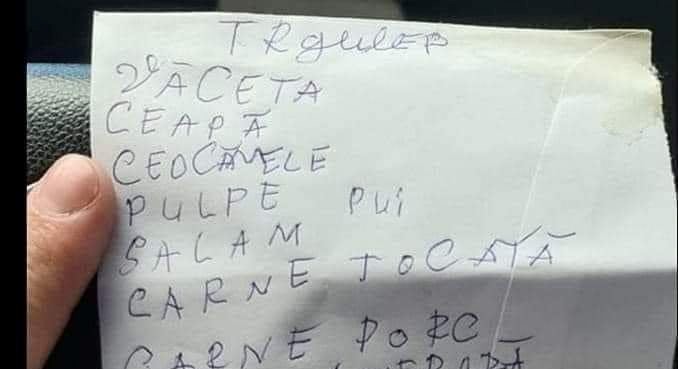 TRguler
VĂCETA
CEAPĂ
CEOCĂNELE
PULPE PUi
SALAM
CARNE TOCATĂ
CARNE PORC
CARNE